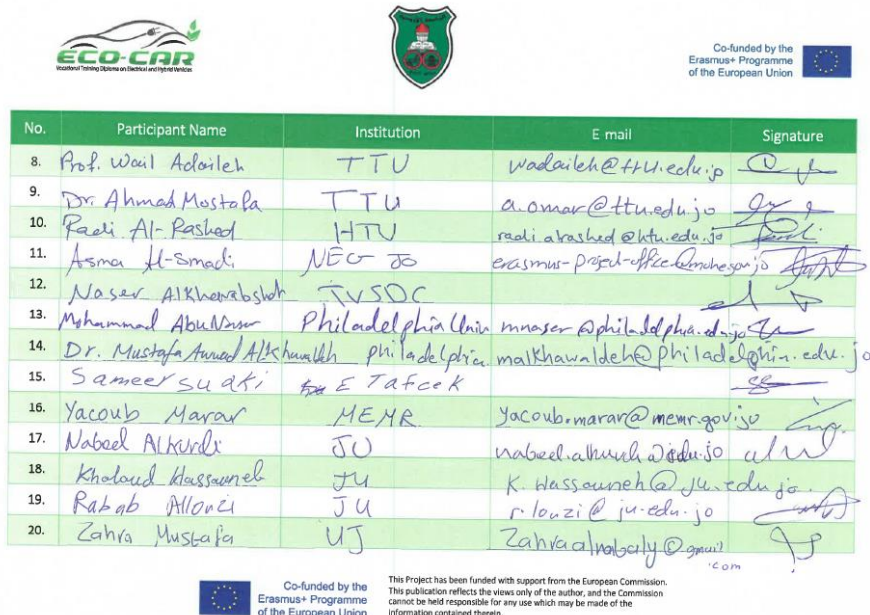 ECO-CAR
Vocational Training Diploma on Electrical and Hybrid Vehicles
Co-funded by the
Erasmus+ Programme
of the European Union
No. Participant Name Institution E mail Signature
8. Prof. Wail Adaileh TTU wadaileh@ttu.edu.jo
9. Dr. Ahmad Mostafa TTU a.omar@ttu.edu.jo
10. Radi Al-Rashed HTU radi.alrashed@htu.edu.jo
11. Asma Al-Smadi NEO JO erasmus-project-office@mohe.gov.jo
12. Naser TVSDC
13. Mohammad AbuNaser Philadelphia Univ mnaser@philadelphia.edu.jo
14. Dr. Mustafa Awwad Alkhawaldeh philadelphia malkhawaldeh@philadelphia.edu.jo
15. Sameer
16. Yacoub Marar MEMR yacoub.marar@memr.gov.jo
17. Nabeel Alkurdi JU
18. Kholoud Hassouneh JU K.Hassouneh@ju.edu.jo
19. Rabab Allouzi JU r.louzi@ju.edu.jo
20. Zahra Mustafa UJ Zahraalnabaly@gmail
.com
Co-funded by the
Erasmus+ Programme
of the European Union
This Project has been funded with support from the European Commission.
This publication reflects the views only of the author, and the Commission
cannot be held responsible for any use which may be made of the
information contained therein.